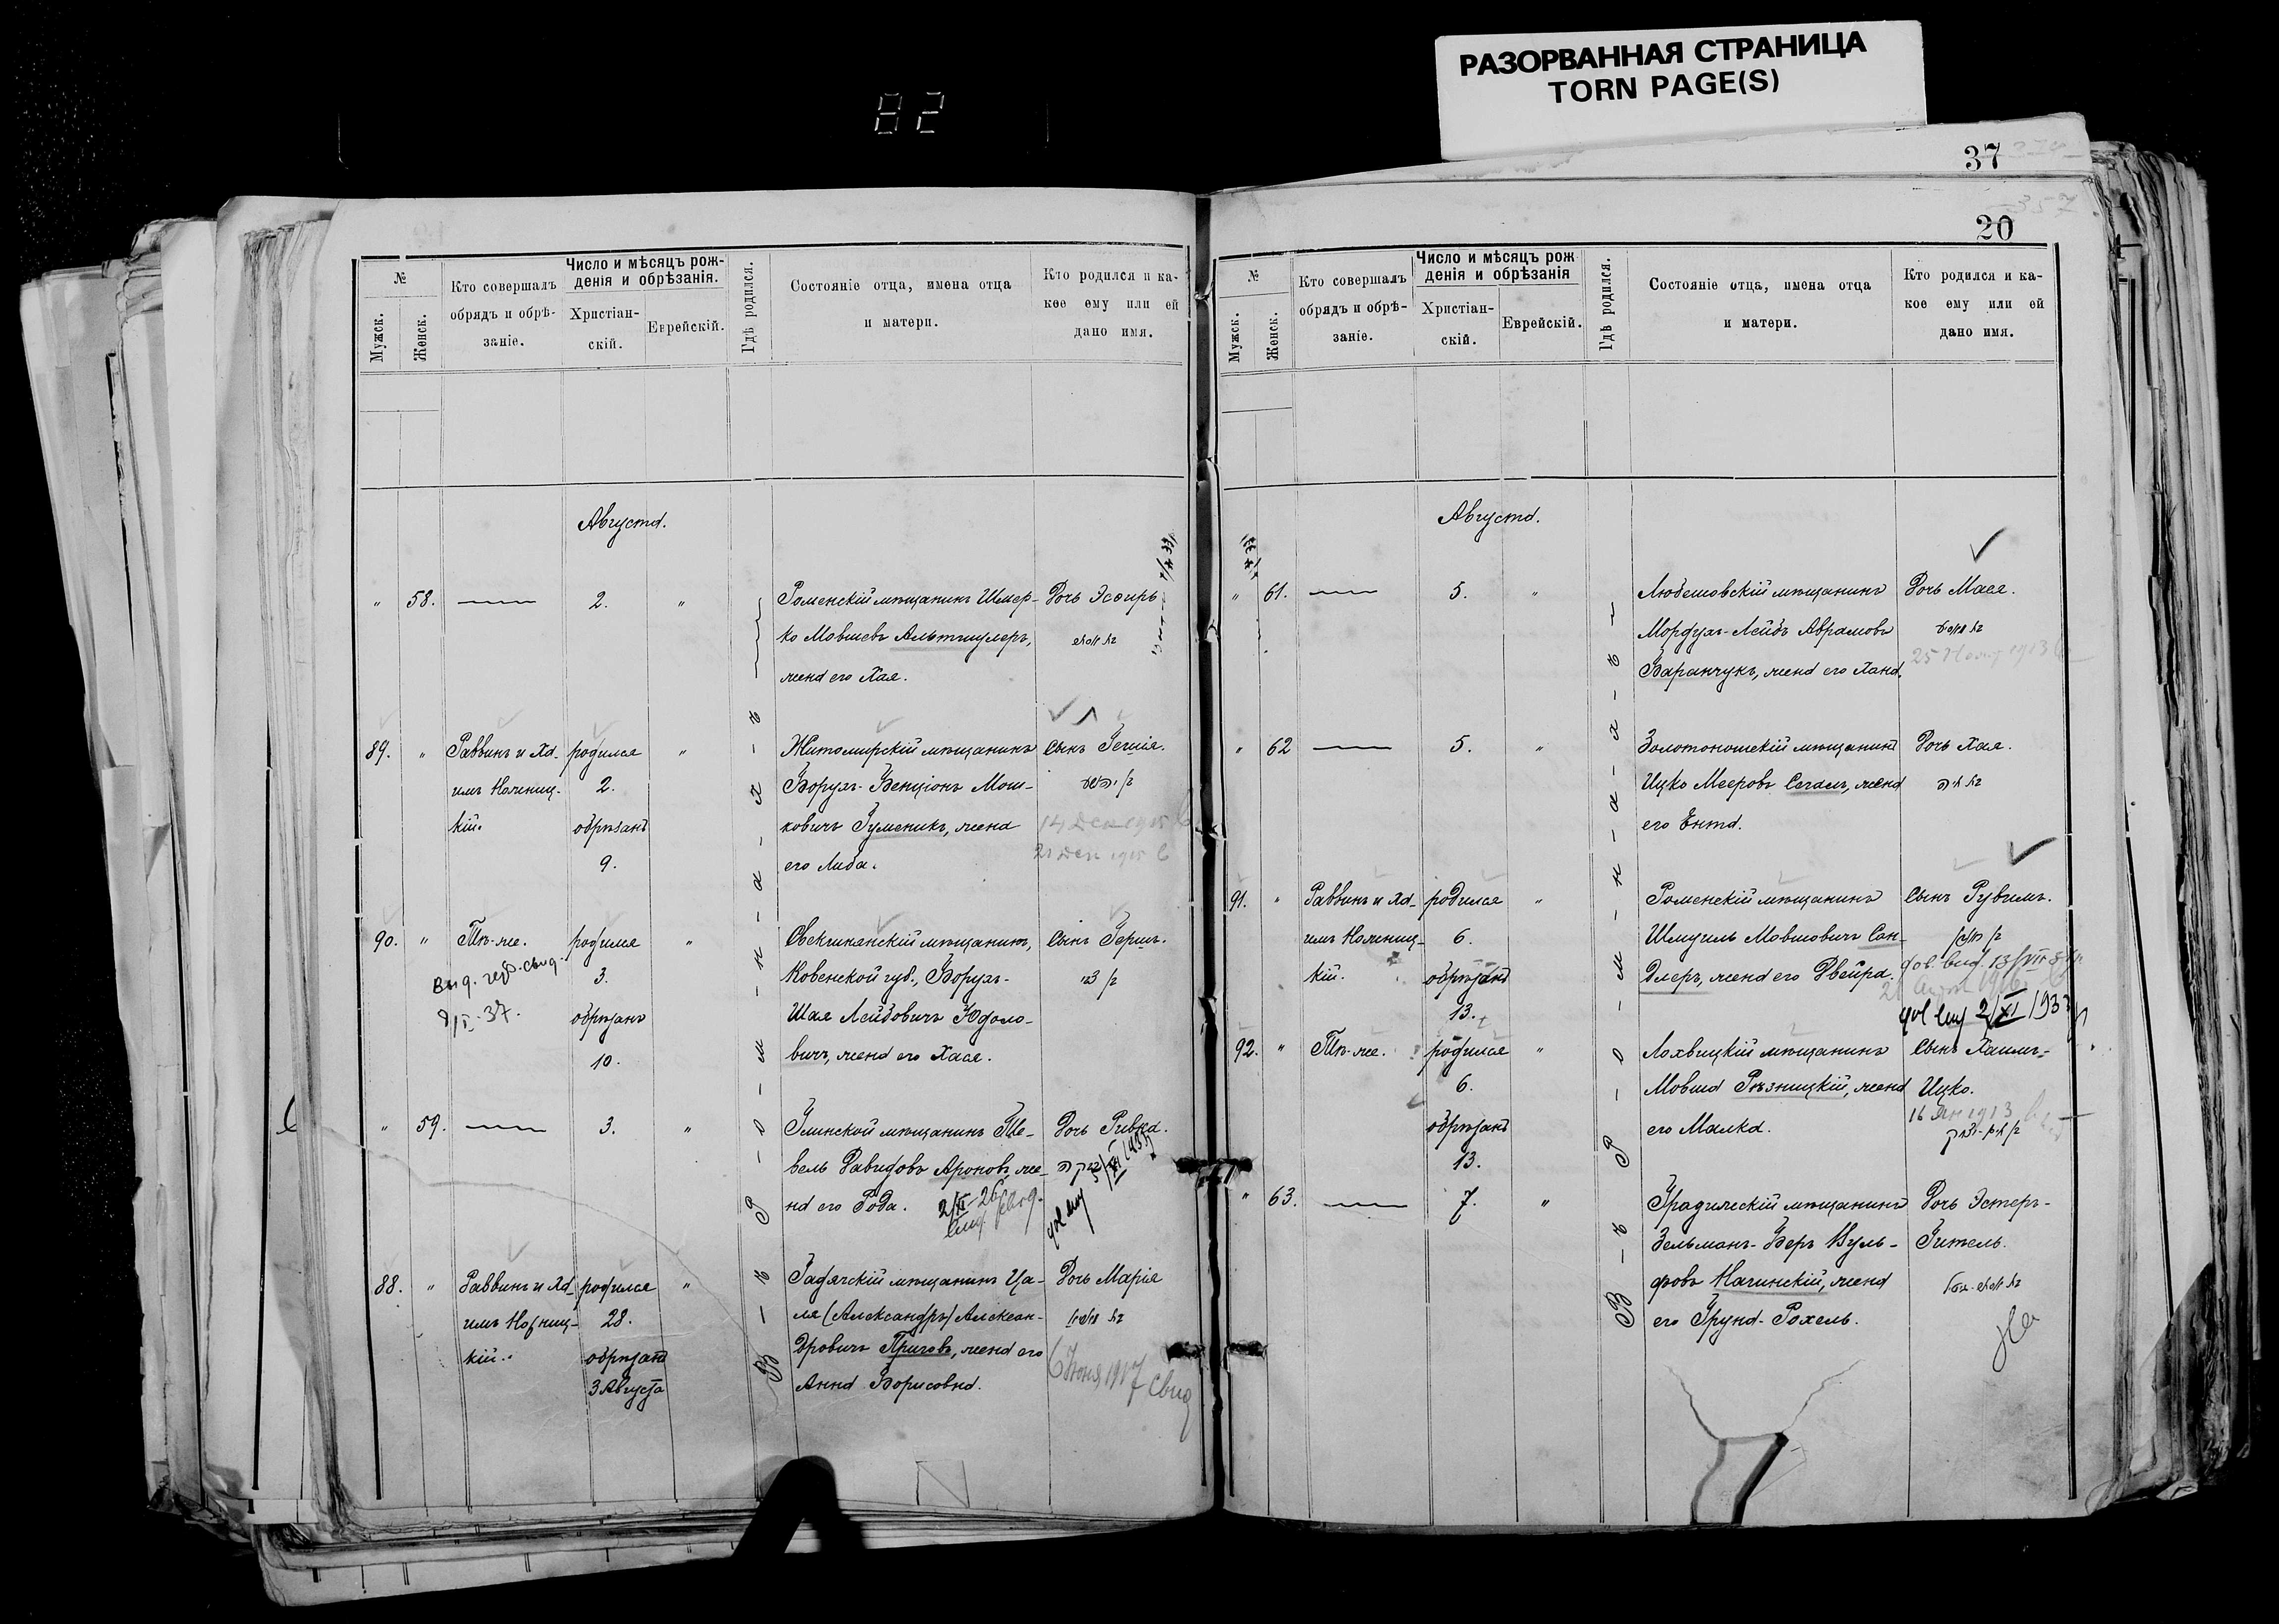 РАЗОРВАННАЯ СТРАНИЦА
TORN PAGE(S)
82
37
20
№
Мужск.
Женск.
Кто совершалъ
обрядъ и обрѣ-
заніе.
Число и мѣсяцъ рож-
денія и обрѣзанія.
Христіан-
скій.
Еврейскій.
Гдѣ родился.
Состояніе отца, имена отца
и матери.
Кто родился и ка-
кое ему или ей
дано имя.
Августа.
" 58. — 2. "
Роменскій мѣщанинъ Шмер-
ко Мовшевъ Альтшулеръ,
жена его Хая.
Дочь Эсѳирь
89. "
Раввинъ и Ха-
имъ
кій.
родился
2.
обрѣзанъ
9.
"
Житомирскій мѣщанинъ
Борухъ-Бенціонъ Мош-
ковичъ Гуменикъ, жена
его Либа.
Сынъ Гешія.
90. "
Тѣ-же.
родился
3.
обрѣзанъ
10.
"
мѣщанинъ,
Ковенской губ., Борухъ-
Шая Лейбовичъ Юдоло-
вичъ, жена его Хася.
Сынъ Гершъ.
" 59. — 3. "
Глинской мѣщанинъ Те-
вель Давидовъ Ароновъ, же-
на его Рода.
Дочь Ривка.
88. "
Раввинъ и Ха-
имъ
кій.
родился
28.
обрѣзанъ
3 Августа
"
Гадячскій мѣщанинъ Ца-
ля (Александръ) Алексан-
дровичъ Приговъ, жена его
Анна Борисовна.
Дочь Марія
6 Июня 1917 свид
В ъ Р о м н а х ъ
№
Мужск.
Женск.
Кто совершалъ
обрядъ и обрѣ-
заніе.
Число и мѣсяцъ рож
денія и обрѣзанія
Христіан-
скій.
Еврейскій.
Гдѣ родился.
Состояніе отца, имена отца
и матери.
Кто родился и ка-
кое ему или ей
дано имя.
Августа.
" 61. — 5. "
Любешовскій мѣщанинъ
Мордухъ-Лейбъ Абрамовъ
Баранчукъ, жена его Хана.
Дочь Мася.
" 62 — 5. "
Золотоношскій мѣщанинъ
Ицко Мееровъ Сегалъ, жена
его Ента.
Дочь Хая.
91. "
Раввинъ и Ха-
имъ
кій.
родился
6.
обрѣзанъ
13.
"
Роменскій мѣщанинъ
Шмуиль Мовшовичъ Сан-
длеръ, жена его Двейра.
Сынъ Рувимъ.
2/XI 1933
92. "
Тѣ-же.
родился
6.
обрѣзанъ
13.
"
Лохвицкій мѣщанинъ
Мовша Рѣзницкій, жена
его Малка.
Сынъ Хаимъ-
Ицко.
" 63. — 7. "
Градижскій мѣщанинъ
Зельманъ-Беръ Вуль-
фовъ Начинскій, жена
его Груна-Рохель.
Дочь Эстеръ-
Гитель.
В ъ Р о м н а х ъ